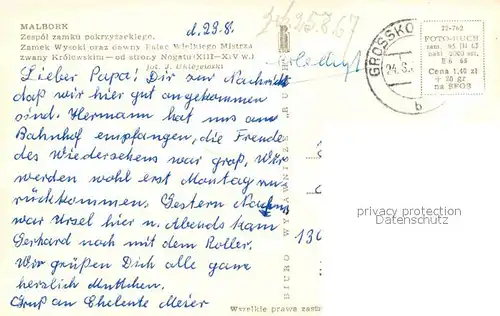 MALBORK
Zespół zamku pokrzyżackiego.
Zamek Wysoki oraz dawny Pałac Wielkiego Mistrza
zwany Królewskim — od strony Nogatu (XIII—XIV w.)
fot. J. Uklejewski
d. 23.8.
25.8.67
erledigt
GROSSKO
24.8.
b
22-762
FOTO-RUCH
Cena 1,40 zł
+ 20 gr
na SFOS
Lieber Papa! Dir zur Nachricht
daß wir hier gut angekommen
sind. Hermann hat uns am
Bahnhof empfangen, die Freude
des Wiedersehens war groß. Wir
werden wohl erst Montag zu-
rückkommen. Gestern Nachm.
war Ursel hier u. Abends kam
Gerhard noch mit dem Roller.
Wir grüßen Dich alle ganz
herzlich Muttchen.
Gruß an Ehelente Meier
BIURO WYDAWNICZE „RUCH"
Wszelkie prawa zastr
130
privacy protection
Datenschutz